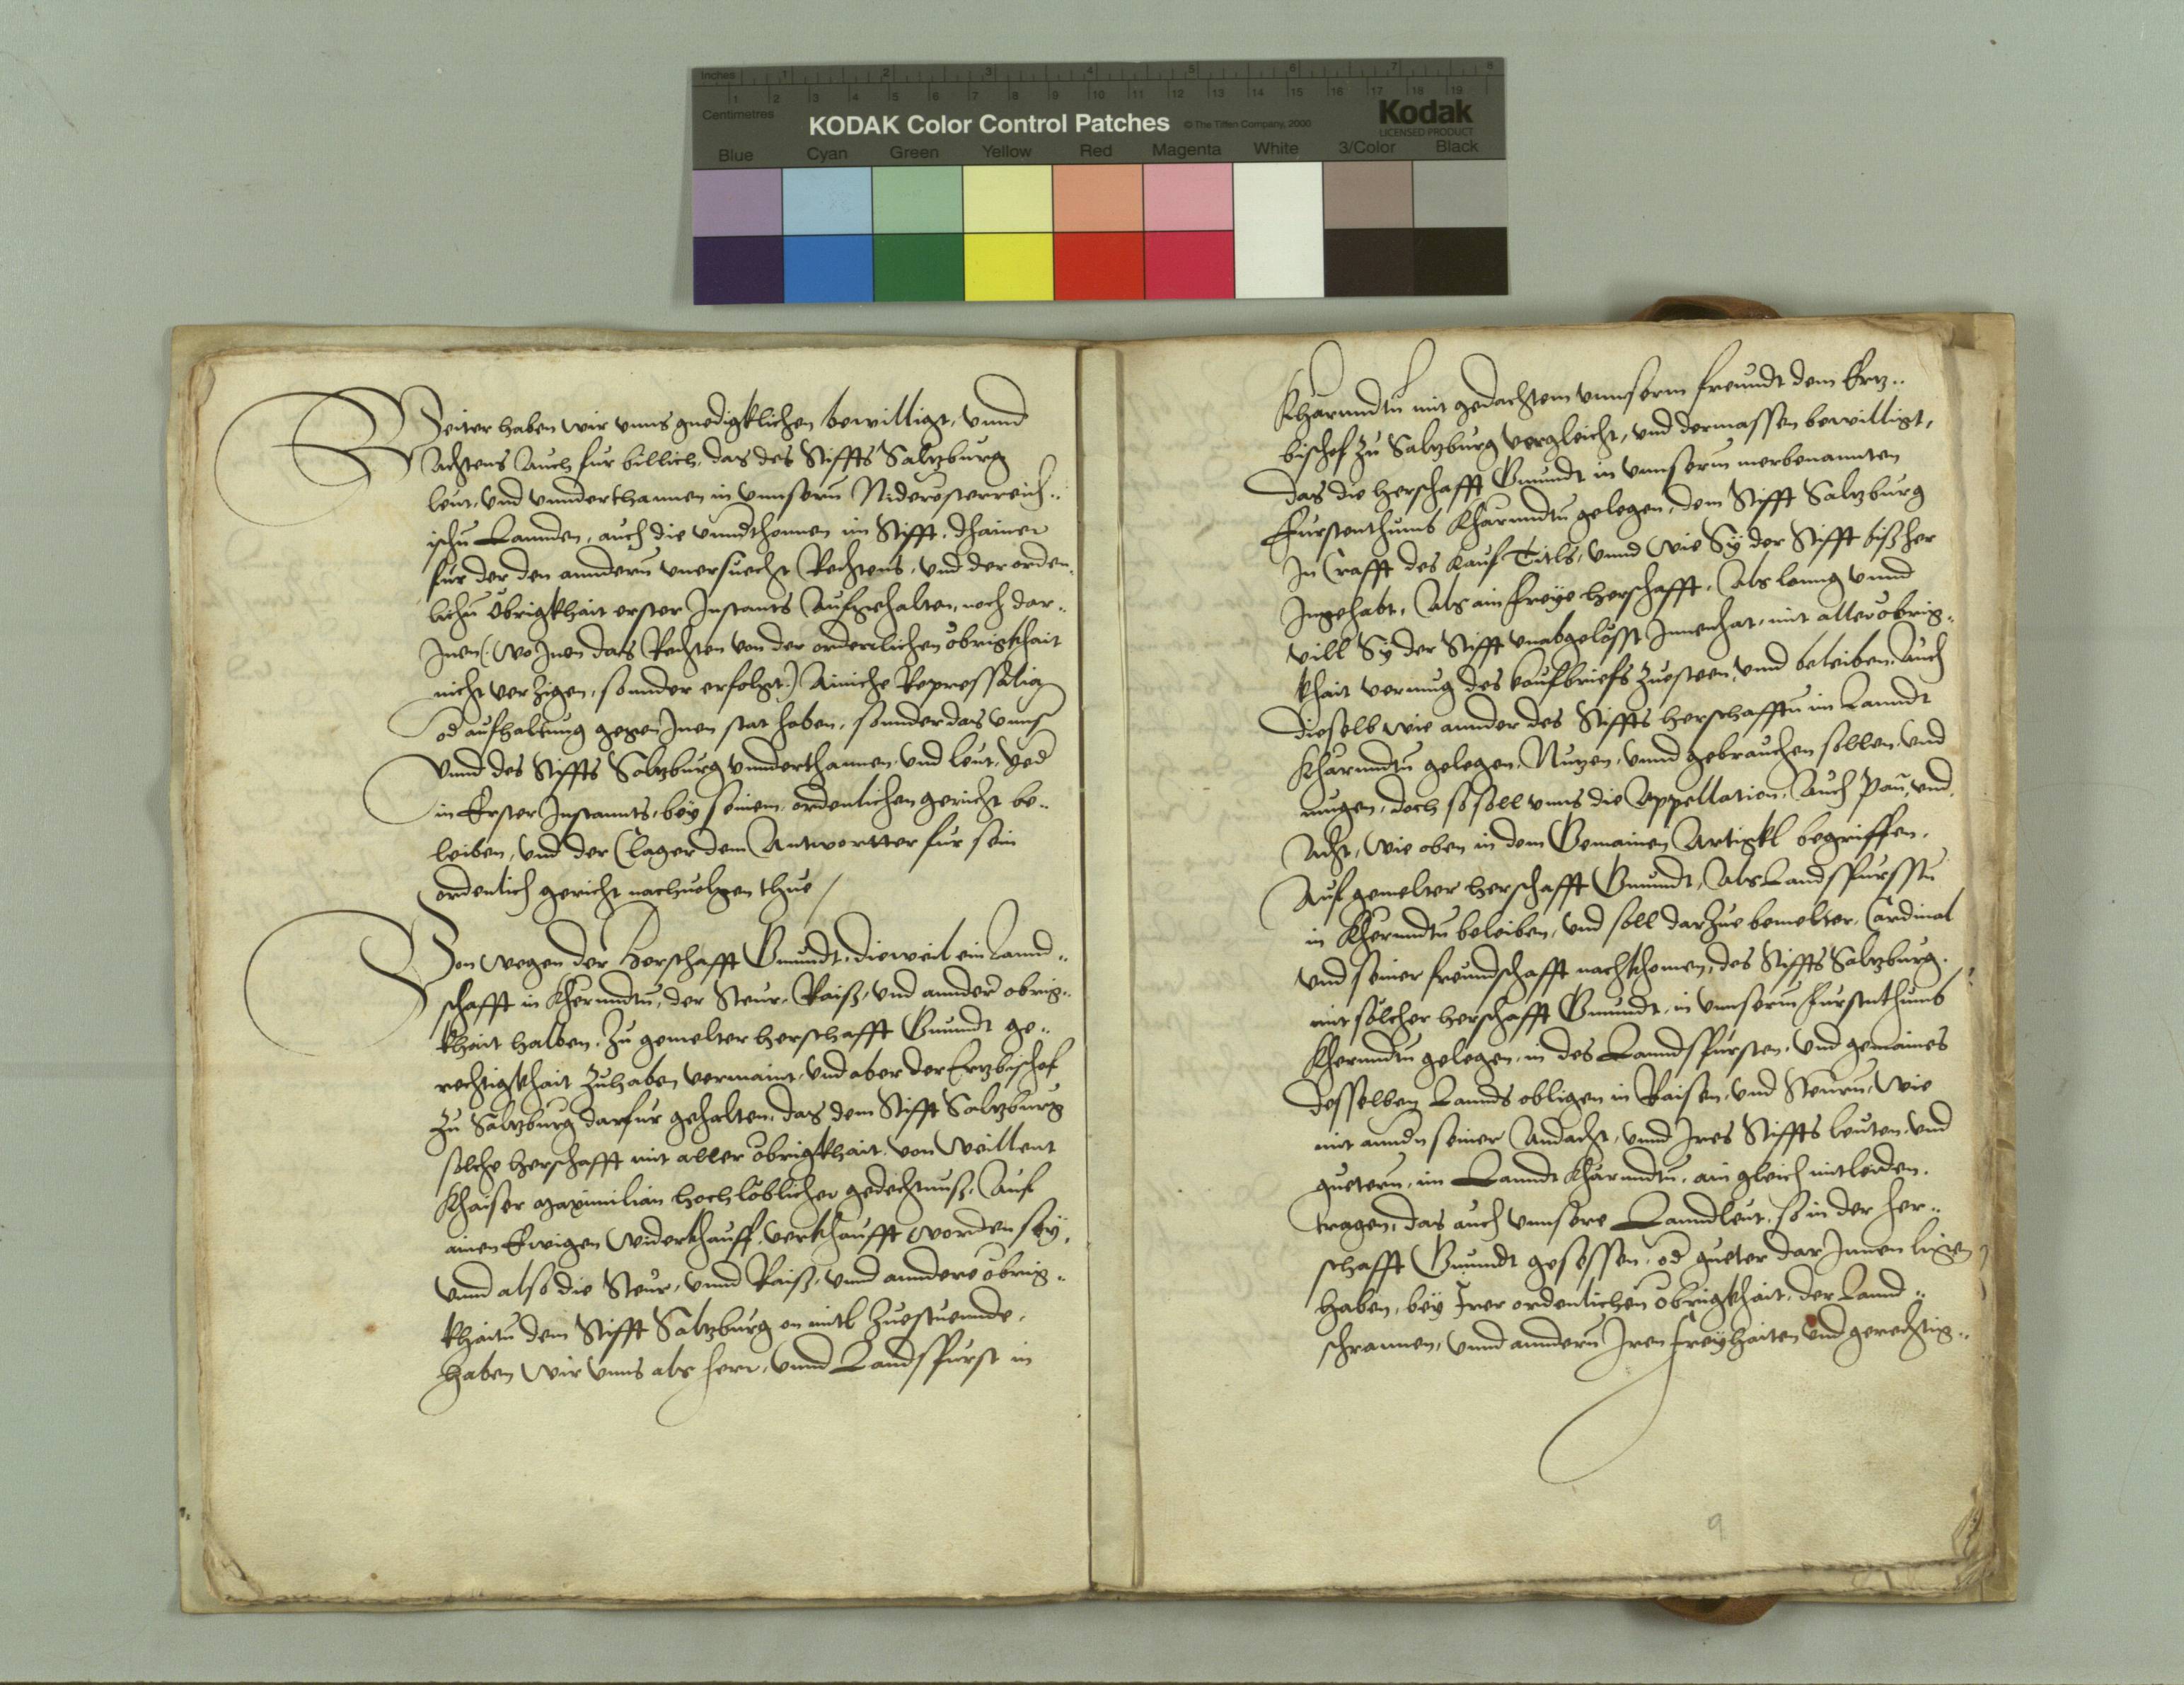 Inches 1 2 3 4 5 6 7 8
Centimetres 1 2 3 4 5 6 7 8 9 10 11 12 13 14 15 16 17 18 19
KODAK Color Control Patches © The Tiffen Company, 2000 Kodak
LICENSED PRODUCT
Blue Cyan Green Yellow Red Magenta White 3/Color Black
Weiter haben wir vnns gnedigklichen bewilligt, vnnd
Achtens Auch fur billich, das des Stiffts Saltzburg
leut, vnd vnnderthannen in vnnsern Niderosterreich..
ischn Lannden, auch die vnndthonen im Stifft, dhainer
fur der den anndern vnersuecht Rechtens, vnd der orden..
lichn Obrigkhait erster Instants Aufgehalten, noch dar..
Inen (Wo Inen das Rechten von der ordenlichen obrigkhait
nicht verzigen, sonnder erfolgt) Ainiche Repressalia
od aufhaltung gegen Inen stat haben, sonnder das vnns
Vnnd des Stiffts Saltzburg vnnderthannen, vnd leut, Yed
in Erster Instannts, bey seinem ordenlichen gericht be..
leiben, vnd der Clager dem Antwortter fur sein
ordenlich gericht nachuolgen thue /
Von wegen der Herschafft Gmundt, dieweil ein Lannd..
schafft in Khernndtn, der Steur, Raiß, vnd annder obrig..
khait halben, Zu gemelter herschafft Gmundt ge..
rechtigkhait Zuhaben vermaint, vnd aber der Ertzbischof
Zu Saltzburg darfur gehalten, das dem Stifft Saltzburg
solche herschafft mit aller obrigkhait, von Weillent
Khaiser Maximilian hochloblicher gedechtnuß, Auf
ainen Ewigen Widerkhauff, verkhaufft worden sey,
vnnd also die Steur, vnnd Raiß, vnnd anndere obrig..
khaitn dem Stifft Saltzburg on mitl Zuestuennde,
haben Wir vnns als herr, vnnd Landsfurst in
Kharnndtn mit gedachtem vnnserm freundt dem Ertz..
bischof Zu Saltzburg vergleicht, vnd dermassen bewilligt,
Das die herschafft Gmundt in vnnserm merbenannten
Furstenthumb Kharnndtn gelegen, dem Stifft Saltzburg
In Crafft des Kauf Titls, vnnd wie Sy der Stifft bißher
Ingehabt, Als ain freye herschafft, Als lanng vnnd
vill Sy der Stifft vnabgelösst Innenhat, mit aller obrig..
khait vermug des kaufbriefs Zuesteen, vnnd beleiben, Auch
dieselb wie annder des Stiffts herschafftn im Lanndt
Kharnndtn gelegen, Nutzen, vnnd gebrauchen sollen, vnd
mugen, doch so soll vnns die Appellation, Auch Pan, vnd
Acht, Wie oben in dem Gemainen Articl begriffen,
Auf gemelter herschafft Gmundt, Als Landsfurstn
in Khernndtn beleiben, vnd soll darzue bemelter Cardinal
vnd seiner freundschafft nachkhomen, des Stiffts Saltzburg.
mit solcher herschafft Gmundt, in vnnserm furstnthumb
Khernndtn gelegen, in des Lanndsfursten, vnd gemaines
desselben Lannds obligen in Raisen, vnd Steurn, Wie
mit anndn seiner Andacht, vnnd Ires Stiffts leuten, vnd
guetern, im Lanndt Kharnndtn, ain gleich mitleiden.
tragen, das auch vnnsere Lanndleut, so in der her..
schafft Gmundt gesessen, od gueter dar Innen ligen
haben, bey Irer ordenlichen obrigkhait, der Lannd..
schrannen, vnnd anndern Iren freyhaiten vnd gerechtig..
9